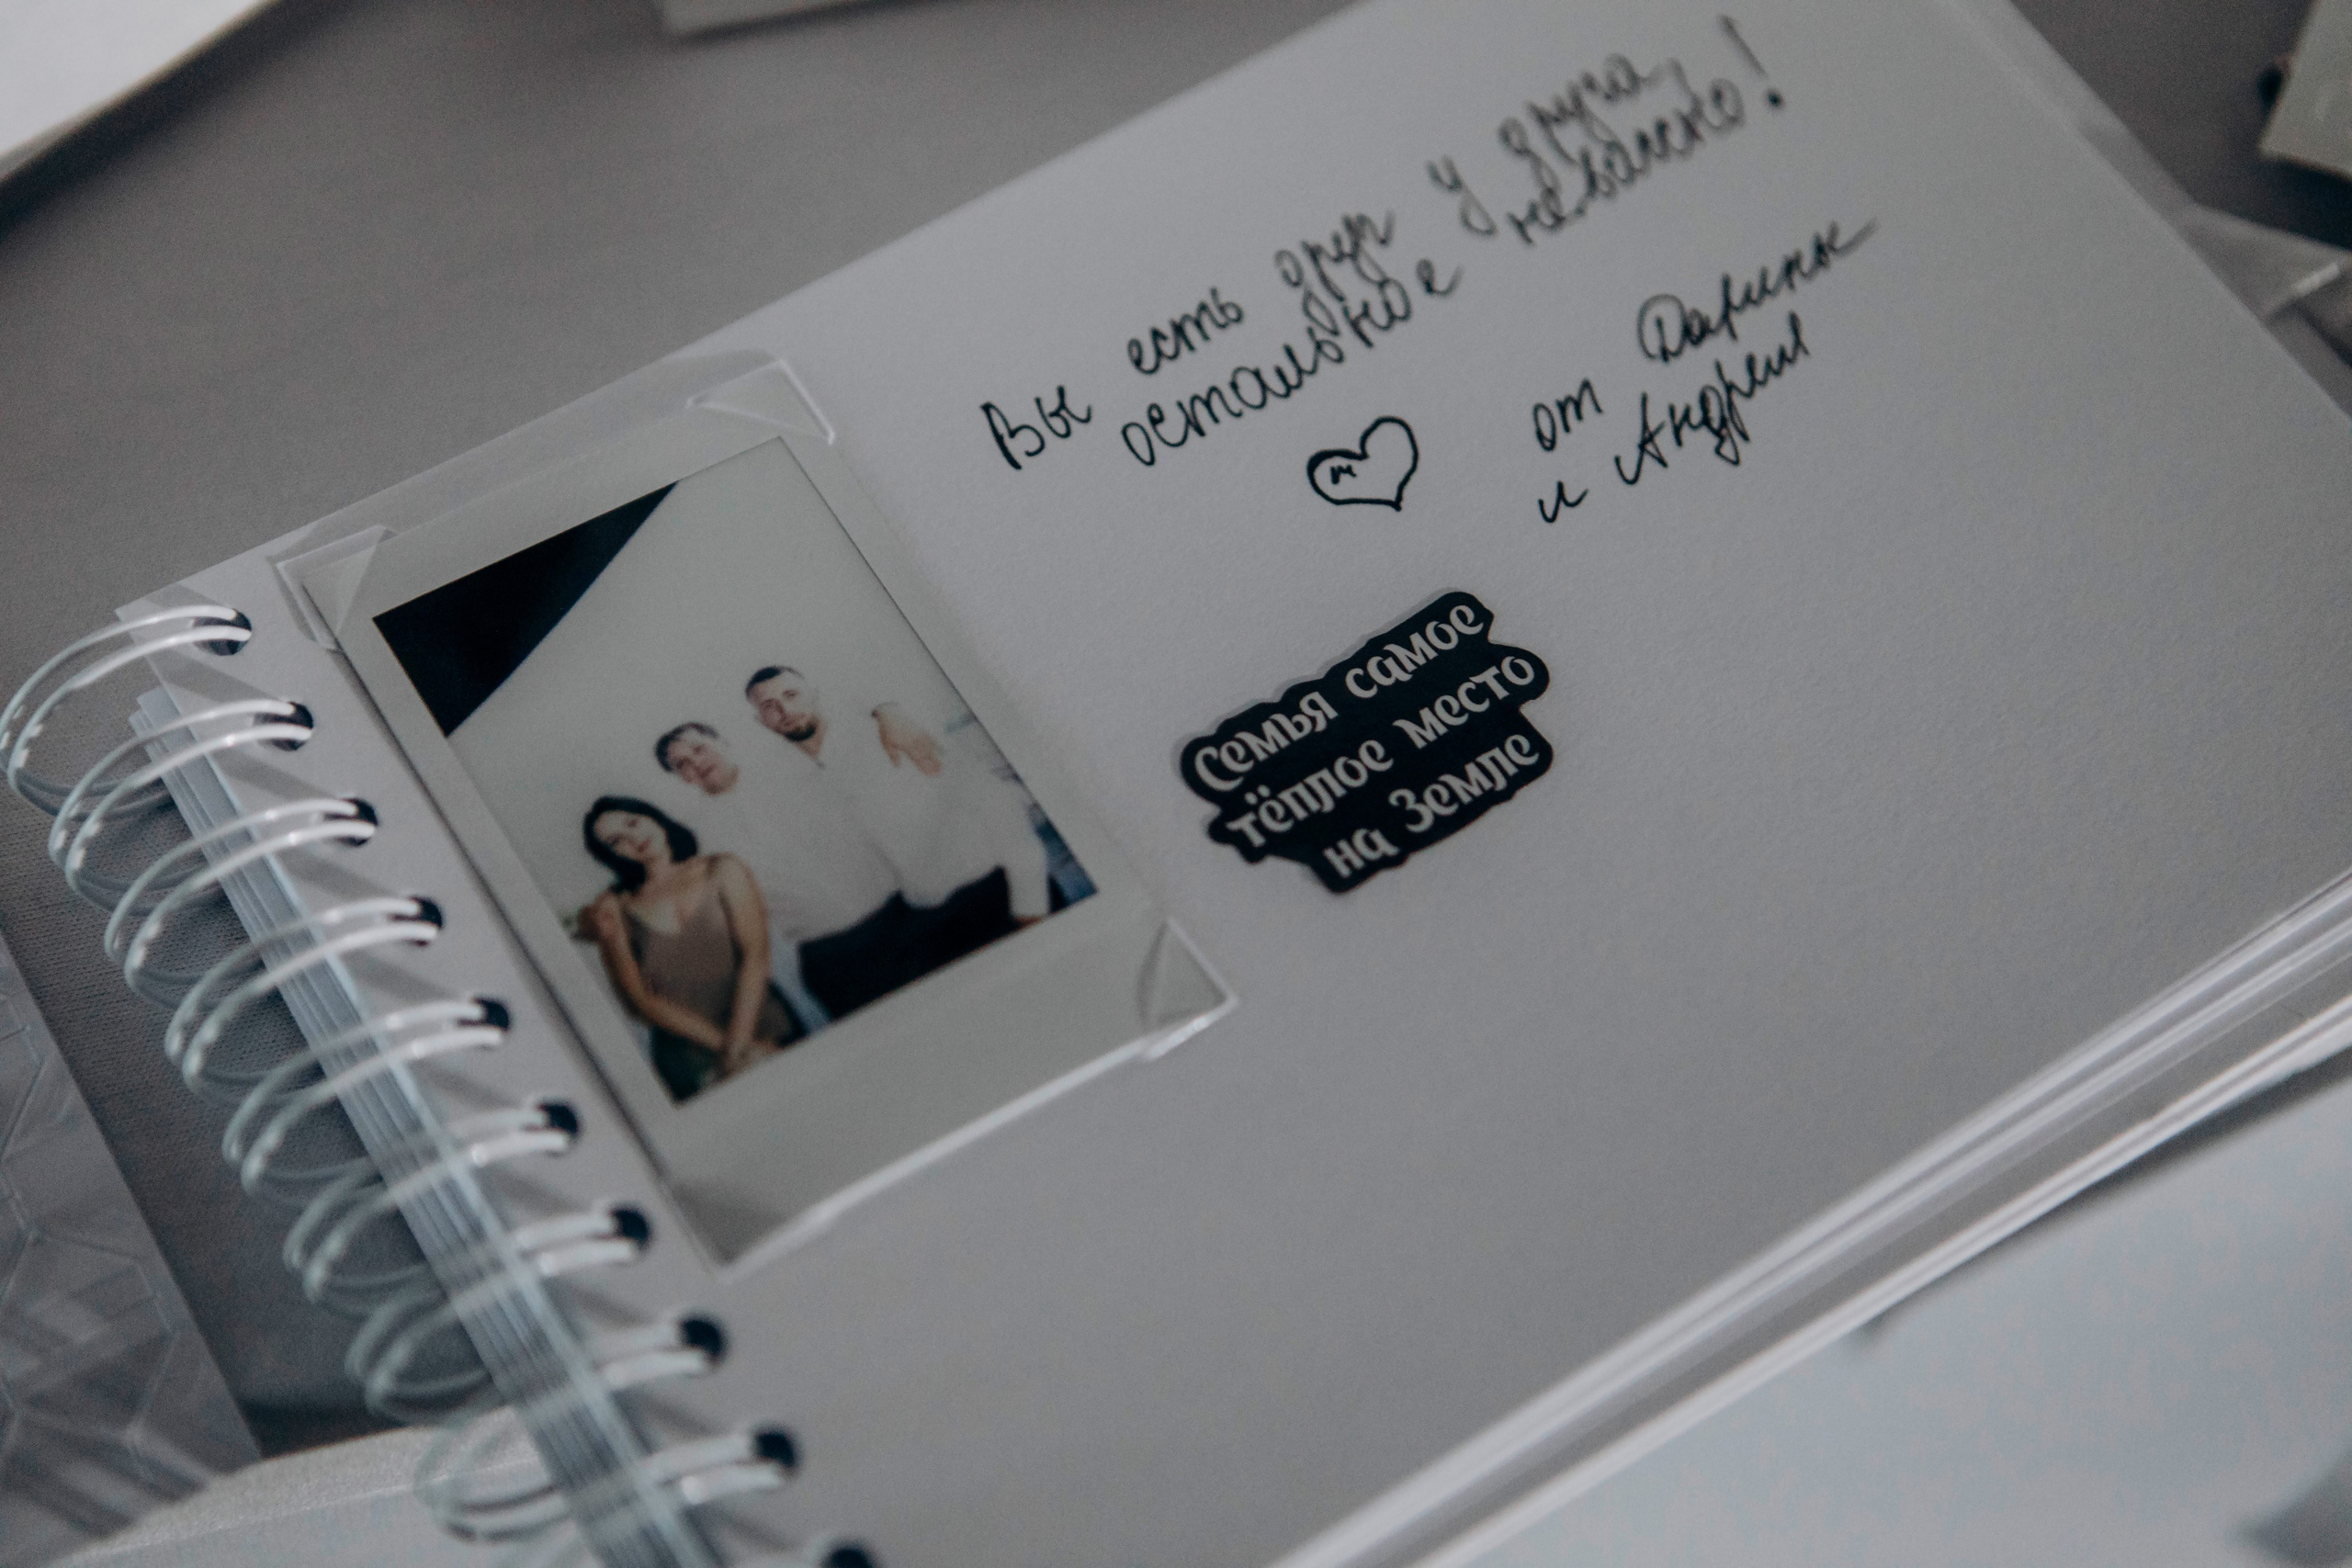 Вы есть друг у друга,
остальное неважно!
от Дарины
и Андрея
Семья самое
тёплое место
на Земле